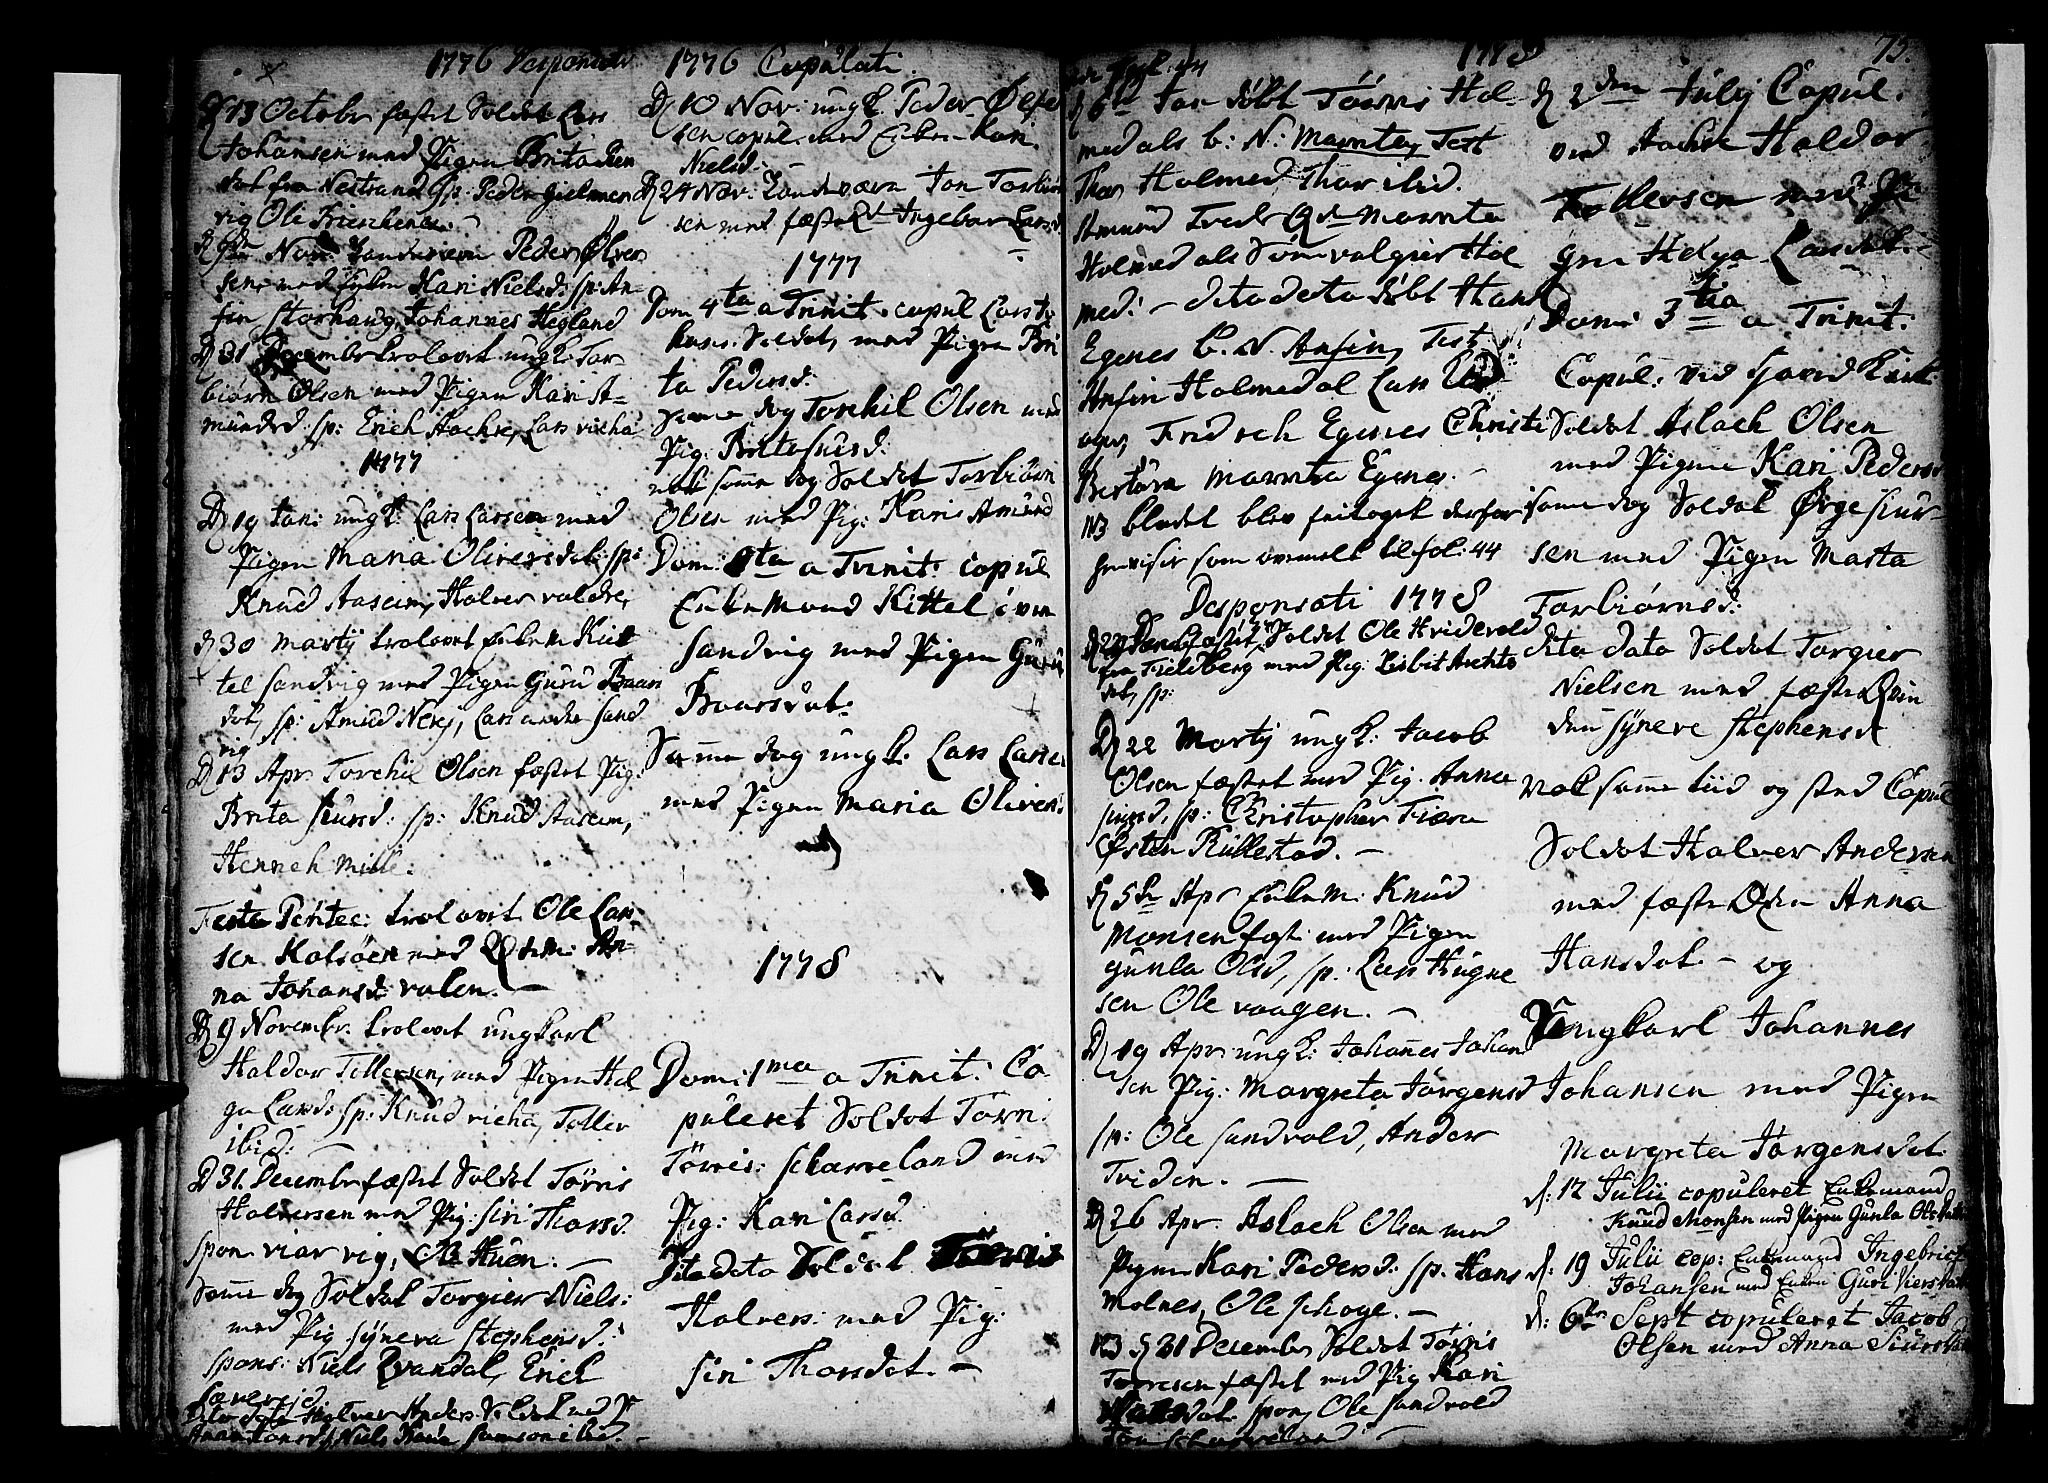 1776 Desponsati
D 13 October fæstet Soldat Lars
Johansen med Pigen Brita
dat fra Nestrand sp: Peder
vig Ole
Nov: Peder Ølver
sen med Enken Kari Nielsd: sp: An
fin Storhaug, Johannes Hegland
D 31 Decembr trolovet ungk. Tor
biørn Olsen med Pigen Kari A=
mundsd sp: Erich Aachre, Lars vicha
1777
D 19 Jan: ungk: Lars Larsen med
Pigen Maria Oliversdat: sp:
Knud Aaseim, Halver valdre,
D 30 Martij trolovet Enkem Kit
tel Sandvig med Pigen Guru Baars
dat, sp: Amund Nerj, Lars andr Sand
vig
D 13 Apr Torchil Olsen fæstet Pig:
Brita Siursd: sp: Knud Aaseim,
Henrich Mille.
Festa Pentec: trolovet Ole Lar
sen Kalsöen med An
na Johansd valen. —
D 9 Novembr. trolovet ungkarl
Haldor Tollersen, med Pigen Hel
ga Larsd: sp: Knud vicha, Toller
ibid: —
D 31. Decembr fæstet Soldat Törris
Halversen med Pig: Siri Thorsd.
spon. viar vig, Ole Huen: —
Samme dag Soldat Torgier Niels:
med Pig Syneva Stephensd:
spons: Niels Qvandal, Erich
Dito dato Halver Anders: Soldat med P
Anna Hansd, Niels Samson ibid. —
1776 Copulati
D 10 Nov: ungk. Peder Ølver
sen copul. med Enken Kari
Nielsd:
D 24 Nov: Jon Torbiørn
sen med fæste Ingebor Larsd
1777
Dom 4ta a Trinit. copul Lars Jo
hans. Soldat, med Pigen Bri
ta Pedersd:
Samme dag Torchil Olsen med
Pig: Brita Siursd:
nok samme dag Soldat Torbiørn
Olsen med Pig: Kari Amund
Dom: a Trinit: copul
Enkemand Kittel
Sandvig med Pigen Guru
Baarsdat:
Samme dag ungk: Lars Larsen
med Pigen Maria Olivers
1778
Domi: 1ma a Trinit: Co-
puleret Soldat Torri
Törris: Schareland med
Pig: Kari Larsd.
Dito dato Soldat
Halvers: med Pig:
Siri Thorsdat. —
1778
6te Jan döbt Törris Hol
medals b: N: Marrite, Test
Thor Holmed Thor ibid.
Amund Marrita
Holmedals Holl
med: — dito dato döbt Hans
Egenes b. N. Anfin, Test
Anfin Holmedal Lars
Fridrich Egenes Christi
Marrita Egenes. —
NB bladet blev feiltaget derfor
henviser som ovenmelt til fol: 44
Desponsati 1778
fæstet Soldat Ole Hridevold
fra Fieldberg med Pig: Lisbit
dat, sp:
D 22 Martij ungk: Jacob
Olsen fæstet med Pig. Anna
Siursd, sp: Christopher Fiæra
Østen Rullestad. —
D 5te Apr Enkem: Knud
Monsen fæst: med Pigen
Gunla Olsd, sp: Lars Hugne
sen Ole vaagen. —
D 19 Apr: ungk: Johannes Johan
sen Pig: Margreta Jörgensd
sp: Ole Sandvold, Ander
Tviden. —
D 26 Apr. Aslach Olsen med
Pigen Kari Pedersd: sp. Hans
Molnes, Ole Schoge. —
NB D 31 Decembr Soldat Törris
Törresen fæstet med Pig Kari
Larsdat. spon, Ole Sandvold
75.
D 2den Julij Copul.
ved Aachre Haldor
Tollersen med Pi
gen Helga Larsdat.
Domi 3tia a Trinit:
Copul: ved
Soldat Aslach Olsen
med Pigen Kari Pedersd
samme dag Soldat Ørge Siur-
sen med Pigen Marta
Torbiörnsd:
dito dato Soldat Torgier
Nielsen med fæste Qvin
den Syneve Stephensd
Nok samme tiid og sted Copul
Soldat Halver Andersen
med fæste Anna
Hansdat. — og
Ungkarl Johannes
Johansen med Pigen
Margreta Jörgensdat.
d: 12 Julii copuleret Enkemand
Knud Monsen med Pigen Gunla Olsdatt
d: 19 Julii cop: Enkemand Ingebrigt
Johansen med Enken Guri Siersdat
d: 6te Sept copuleret Jacob
Olsen med Anna Siursdat